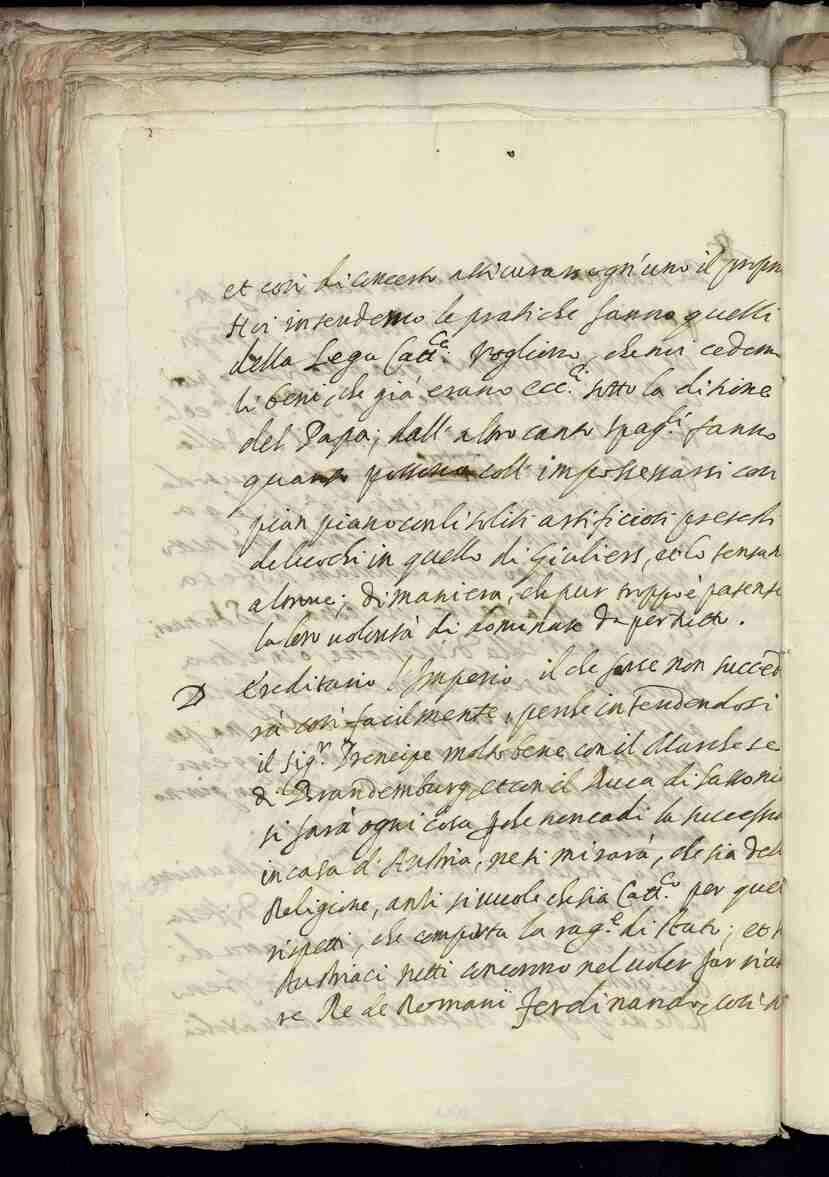 et così di concerto assicurare ogn'uno il propri
Noi intendemo le pratiche fanno quelli
della Lega Catt.ca Vogliono, che noi cedemo
li beni, che già erano ecc.ci sotto la ditione
del Papa; dall'altro canto Spag.li fanno
quanto possono coll'impossessarsi con
pian piano con li soliti artificiosi pretesti
de luochi in quello di Giuliers, et lo tentan
altrove; di maniera, che pur troppo è patente
la loro volontà di dominare da per tutto.
D Ereditario l'Imperio il che forse non succed
rà così facilmente, perche intendendosi
il Sig.r Prencipe molto bene con il Marchese
di Brandemburg, et con il Duca di Sassonia
si farà ogni cosa per che non cadi la successio
in casa d'Austria, ne si mirarà, che sia dell
Religione, anzi si vuole che sia Catt.co per quei
rispetti, che comporta la rag.e di stato; et
Austriaci tutti concorrono nel voler far
re Re de Romani Ferdinando, così